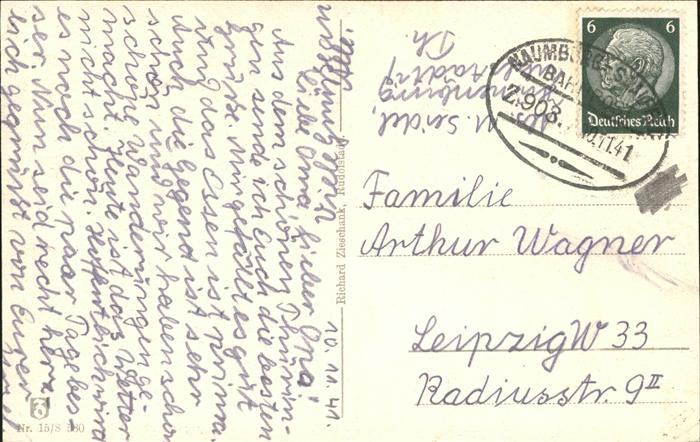 10. 11. 41.
Liebe Oma, lieber Opa!
Aus dem schönen Thürin-
gen sende ich Euch die besten
Grüsse. Mir gefällt es gut
und das Essen ist prima.
Auch die Gegend ist sehr
schön und wir haben schon
schöne Wanderungen ge-
macht. Heute ist das Wetter
nicht schön. Hoffentlich wird
es noch ein paar Tage bes-
ser. Nun seid recht herz-
lich gegrüsst von Eurer
M. Seidel,
Th.
Richard Zieschank, Rudolstadt
Nr. 15/8 580
6 6
Deutsches Reich
NAUMBURG
BAHNPOST
Z.908
10.11.41
Familie
Arthur Wagner
Leipzig W 33
Radiusstr. 9 II